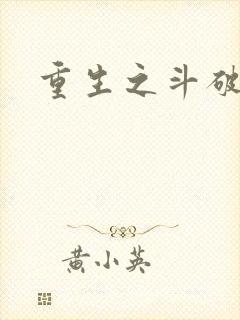 重生之斗破
黄小英